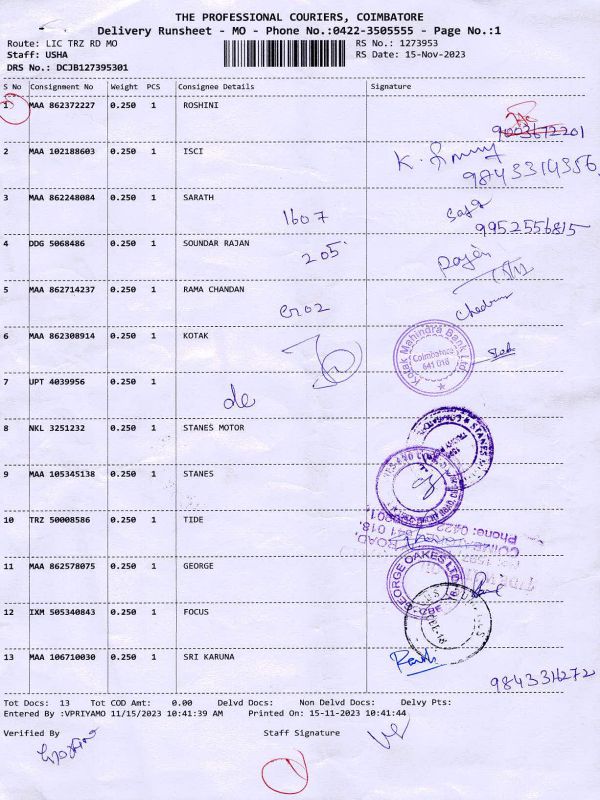 THE PROFESSIONAL COURIERS, COIMBATORE
Delivery Runsheet - MO - Phone No.:0422-3505555 - Page No.:1
Route: LIC TRZ RD MO RS No.: 1273953
Staff: USHA RS Date: 15-Nov-2023
DRS No.: DCJB127395301
S No Consignment No Weight PCS Consignee Details Signature
1 MAA 862372227 0.250 1 ROSHINI
9003672201
2 MAA 102188603 0.250 1 ISCI
9843314356
3 MAA 862248084 0.250 1 SARATH
1607 9952556815
4 DDG 5068486 0.250 1 SOUNDAR RAJAN
205
5 MAA 862714237 0.250 1 RAMA CHANDAN
6 MAA 862308914 0.250 1 KOTAK
Kotak Mahindra Bank Ltd
Coimbatore
641 018
7 UPT 4039956 0.250 1
de
8 NKL 3251232 0.250 1 STANES MOTOR
9 MAA 105345138 0.250 1 STANES
10 TRZ 50008586 0.250 1 TIDE
11 MAA 862578075 0.250 1 GEORGE
GEORGE OAKES LTD
CBE
12 IXM 505340843 0.250 1 FOCUS
13 MAA 106710030 0.250 1 SRI KARUNA
Tot Docs: 13 Tot COD Amt: 0.00 Delvd Docs: Non Delvd Docs: Delvy Pts:
Entered By :VPRIYAMO 11/15/2023 10:41:39 AM Printed On: 15-11-2023 10:41:44
Verified By Staff Signature